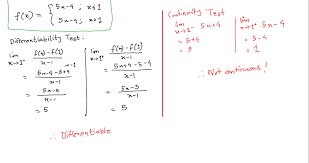 f(x) = { 5x-4 ; x≤1
5x-4 ; x>1
Differentiability Test:
lim x→1⁻ f(x)-f(1) / x-1
5x-4-5+4 / x-1
5x-5 / x-1
= 5
lim x→1⁺ f(x)-f(1) / x-1
5x+4-5-4 / x-1
5x-5 / x-1
= 5
∴ Differentiable
Continuity Test
lim x→1⁻ 5x+4
= 5+4
= 9
lim x→1⁺ 5x-4
= 5-4
= 1
∴ Not continuous!